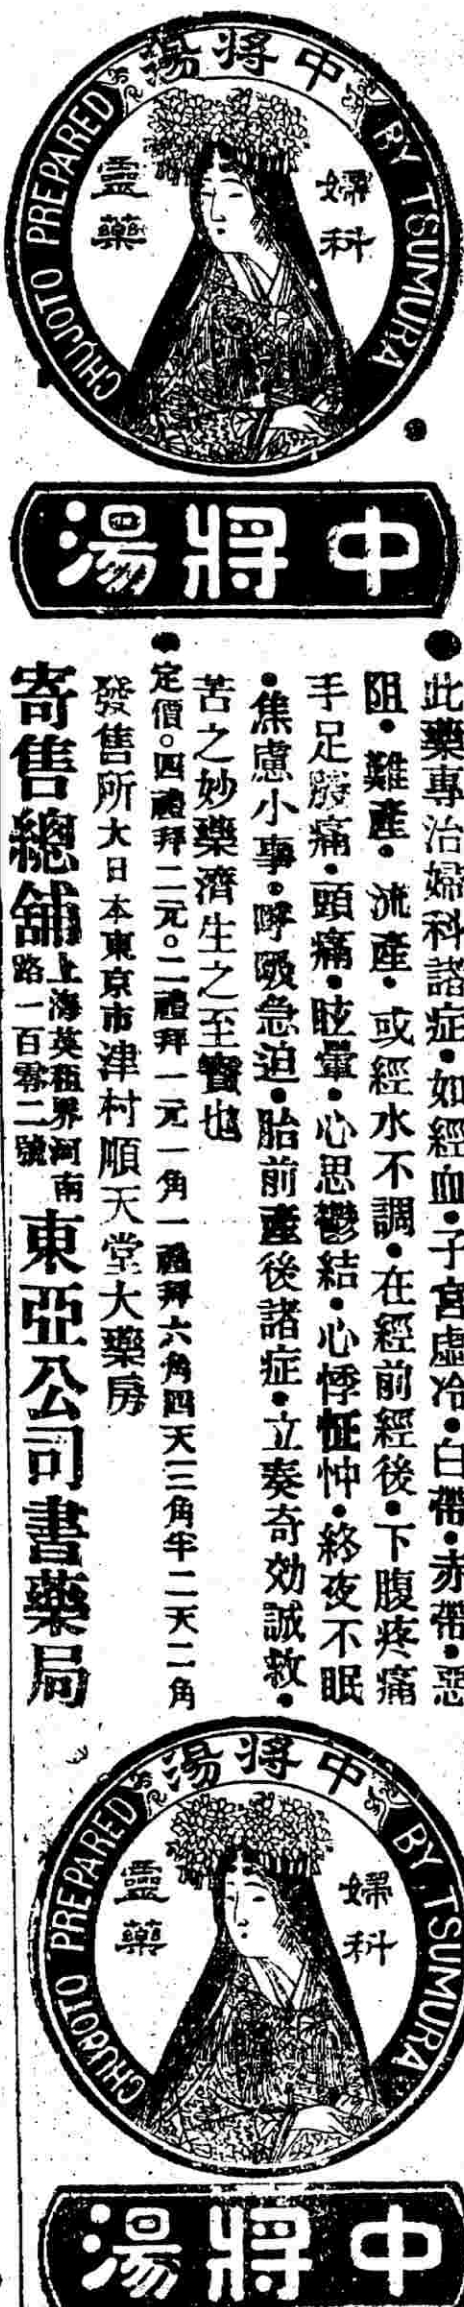 中將湯
CHUJOTO PREPARED BY TSUMURA
婦科
靈藥
中將湯
●此藥專治婦科諸症•如經血•子宮虛冷•白帶•赤帶•惡
阻•難產•流產•或經水不調•在經前經後•下腹疼痛
手足酸痛•頭痛•眩暈•心思鬱結•心悸怔忡•終夜不眠
•焦慮小事•呼吸急迫•胎前產後諸症•立奏奇効誠救•
苦之妙藥濟生之至寶也
●定價。四禮拜二元。二禮拜一元一角一禮拜六角四天三角半二天二角
發售所大日本東京市津村順天堂大藥房
寄售總舖上海英租界河南路一百零二號東亞公司書藥局
中將湯
CHUJOTO PREPARED BY TSUMURA
婦科
靈藥
中將湯